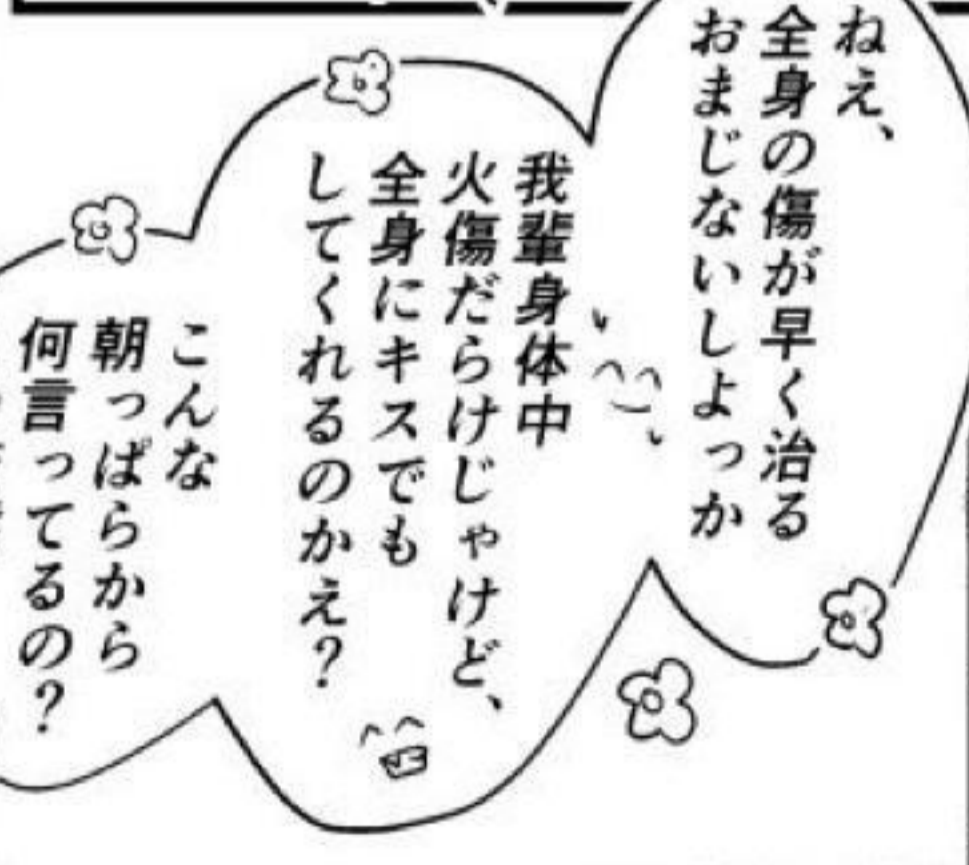 ねえ、
全身の傷が早く治る
おまじないしよっか
我輩身体中
火傷だらけじゃけど、
全身にキスでも
してくれるのかえ？
こんな
朝っぱらから
何言ってるの？